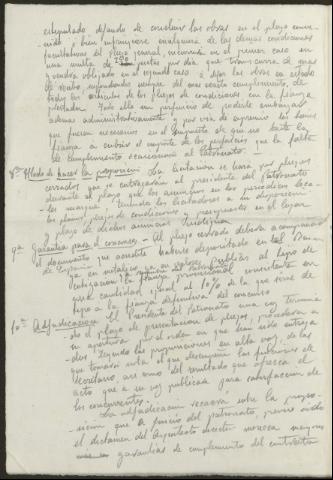 estipulado dejando de concluir las obras en el plazo conve-
nido o bien infringiere cualquiera de las demas condiciones
facultativas del pliego general, incurrirá en el primer caso en
una multa de 250 pesetas por dia que transcurra de mas
y vendrá obligado en el segundo caso á dejar las obras en estado
de recibo, respondiendo siempre del mas exacto cumplimiento, de
todos los articulos de los pliegos de condiciones con la fianza
prestada. Todo ello sin perjuicio de poderle embargar
ademas administrativamente y por via de apremio los bienes
que fueren necesarios en el supuesto de que no baste la
fianza á cubrir el importe de los perjuicios que la falta
de cumplimiento ocasionare al Patronato.
8ª Modo de hacer la proposición La licitacion se hará por pliegos
cerrados que se entregarán al Presidente del Patronato
durante el plazo que los anuncios en los periodicos loca-
les marquen. Tendrán los licitadores a su disposicion
los planos, pliegos de condiciones y presupuestos en el lugar
y plazo de dichos anuncios
9ª Garantias para el concurso – Al pliego cerrado deberá acompañarse
el documento que acredite haberse depositado en el Banco
de España ya en metalico, ya en valores publicos al tipo de
cotizacion la fianza provisional consistente en
una cantidad igual al 10% de la que sirve de
tipo a la fianza definitiva del concurso
10ª Adjudicacion El Presidente del Patronato una vez termina-
do el plazo de presentacion de pliegos, procederá a
su apertura por el orden en que han sido entrega-
dos leyendo las proposiciones en alta voz, de las
que tomará nota el que desempeñe las funciones de
secretario, asi como del resultado que ofrezca el
acto que a su vez publicará para satisfaccion de
los concurrentes.
La adjudicacion recaerá sobre la propo-
sicion que a juicio del patronato, previo oido
el dictamen del Arquitecto director merezca mayores
garantias de cumplimiento del contrato